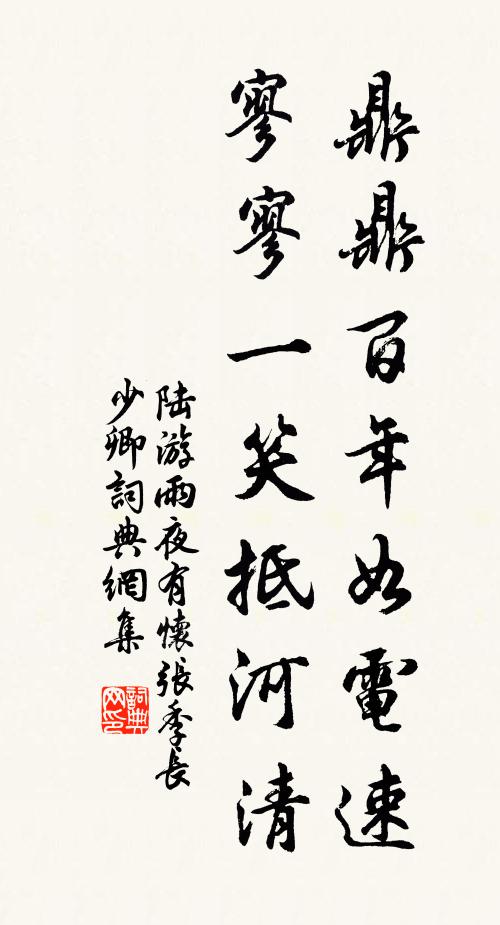 鼎鼎百年如電速
寥寥一笑抵河清
陸游雨夜有懷張季長
少卿詞典網集
詞典
网印